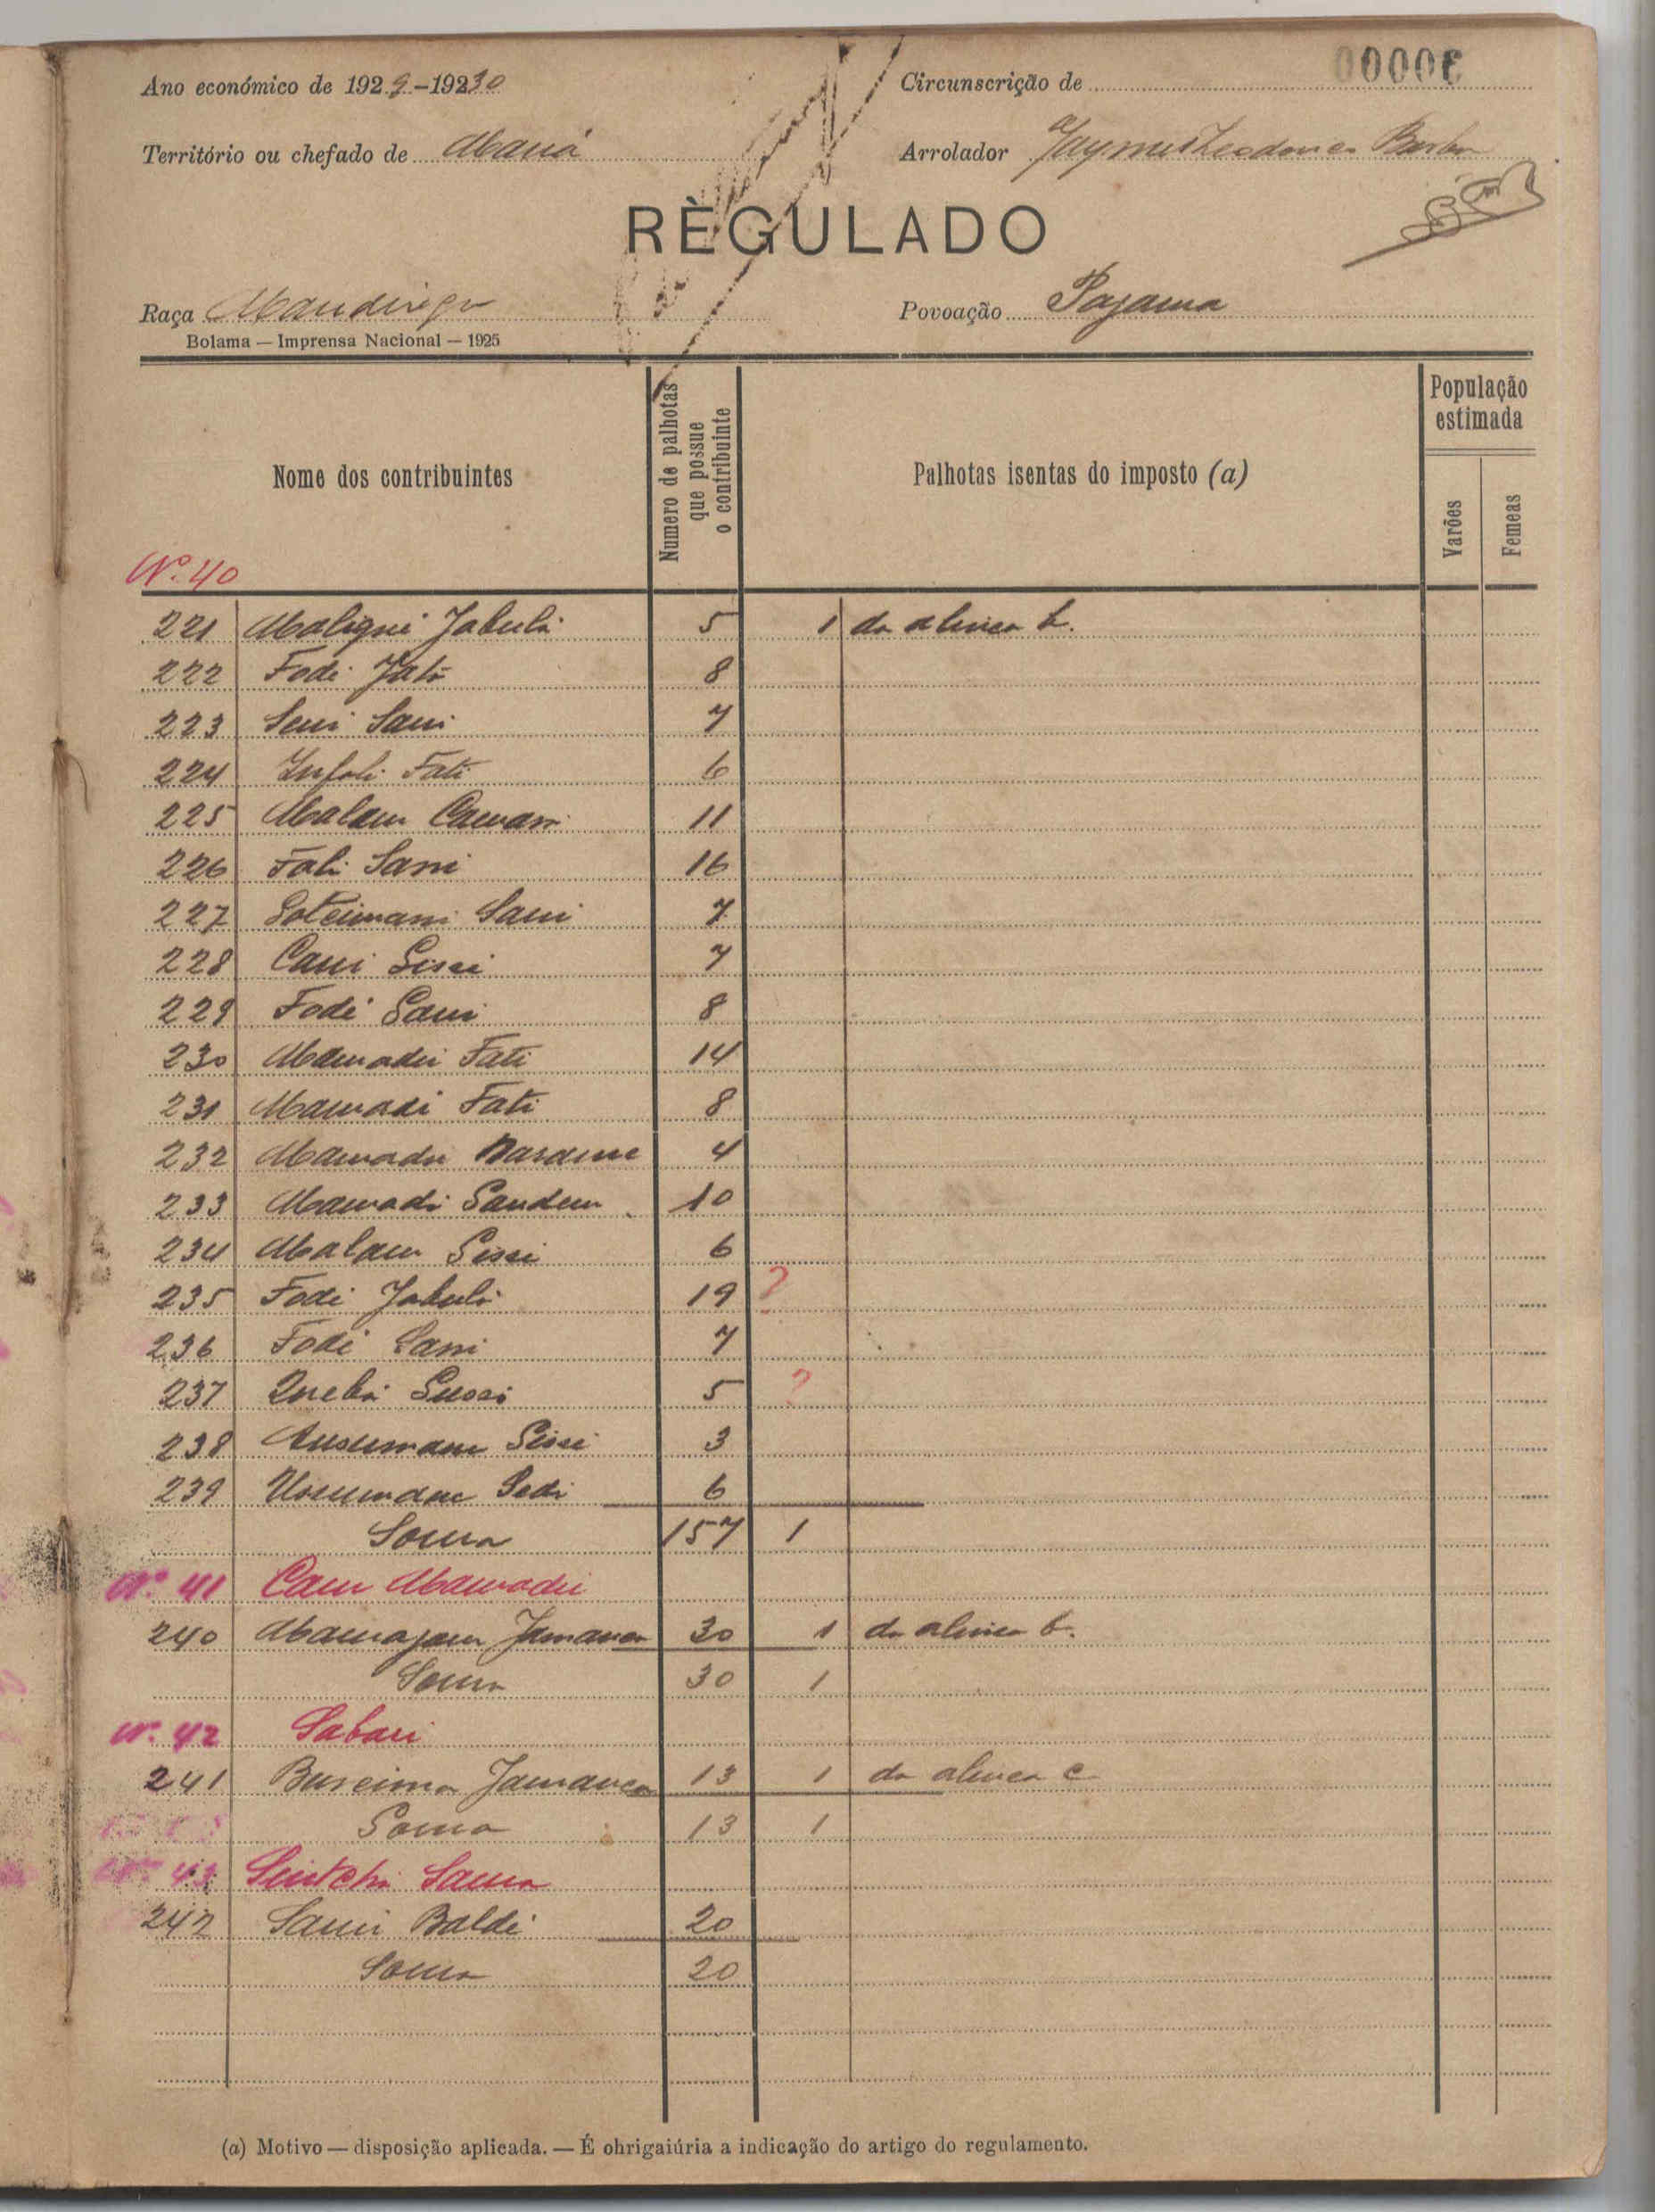 00006
Ano económico de 1929-1930 Circunscrição de
Território ou chefado de Maná Arrolador
RÈGULADO
Raça Mandinga Povoação Pajama
Bolama — Imprensa Nacional — 1925
Nome dos contribuintes
Numero de palhotas que possue o contribuinte
Palhotas isentas do imposto (a)
População estimada
Varões
Femeas
Nº. 40
221 Maligui Jabula 5 1 da alinea b.
222 Fodi 8
223 Seni Sani 7
224 Infali Fati 6
225 Malam 11
226 Fali Sani 16
227 Soleimani Sani 7
228 Cani Sissi 7
229 Fodé Sani 8
230 Mamadu Fati 14
231 Mamadi Fati 8
232 Mamadu 4
233 Mamadi 10
234 Malam Sissi 6
235 Fodi Jabula 19 ?
236 Fodé Sani 7
237 Quebá 5 ?
238 Sissi 3
239 6
Soma 157 1
Nº 41 Cam Mamadu
240 30 1 da alinea b.
Soma 30 1
Nº. 42 Sabari
241 Jamanca 13 1 da alinea c
Soma 13 1
Nº 43
242 Baldé 20
Soma 20
(a) Motivo — disposição aplicada. — É ohrigaiúria a indicação do artigo do regulamento.